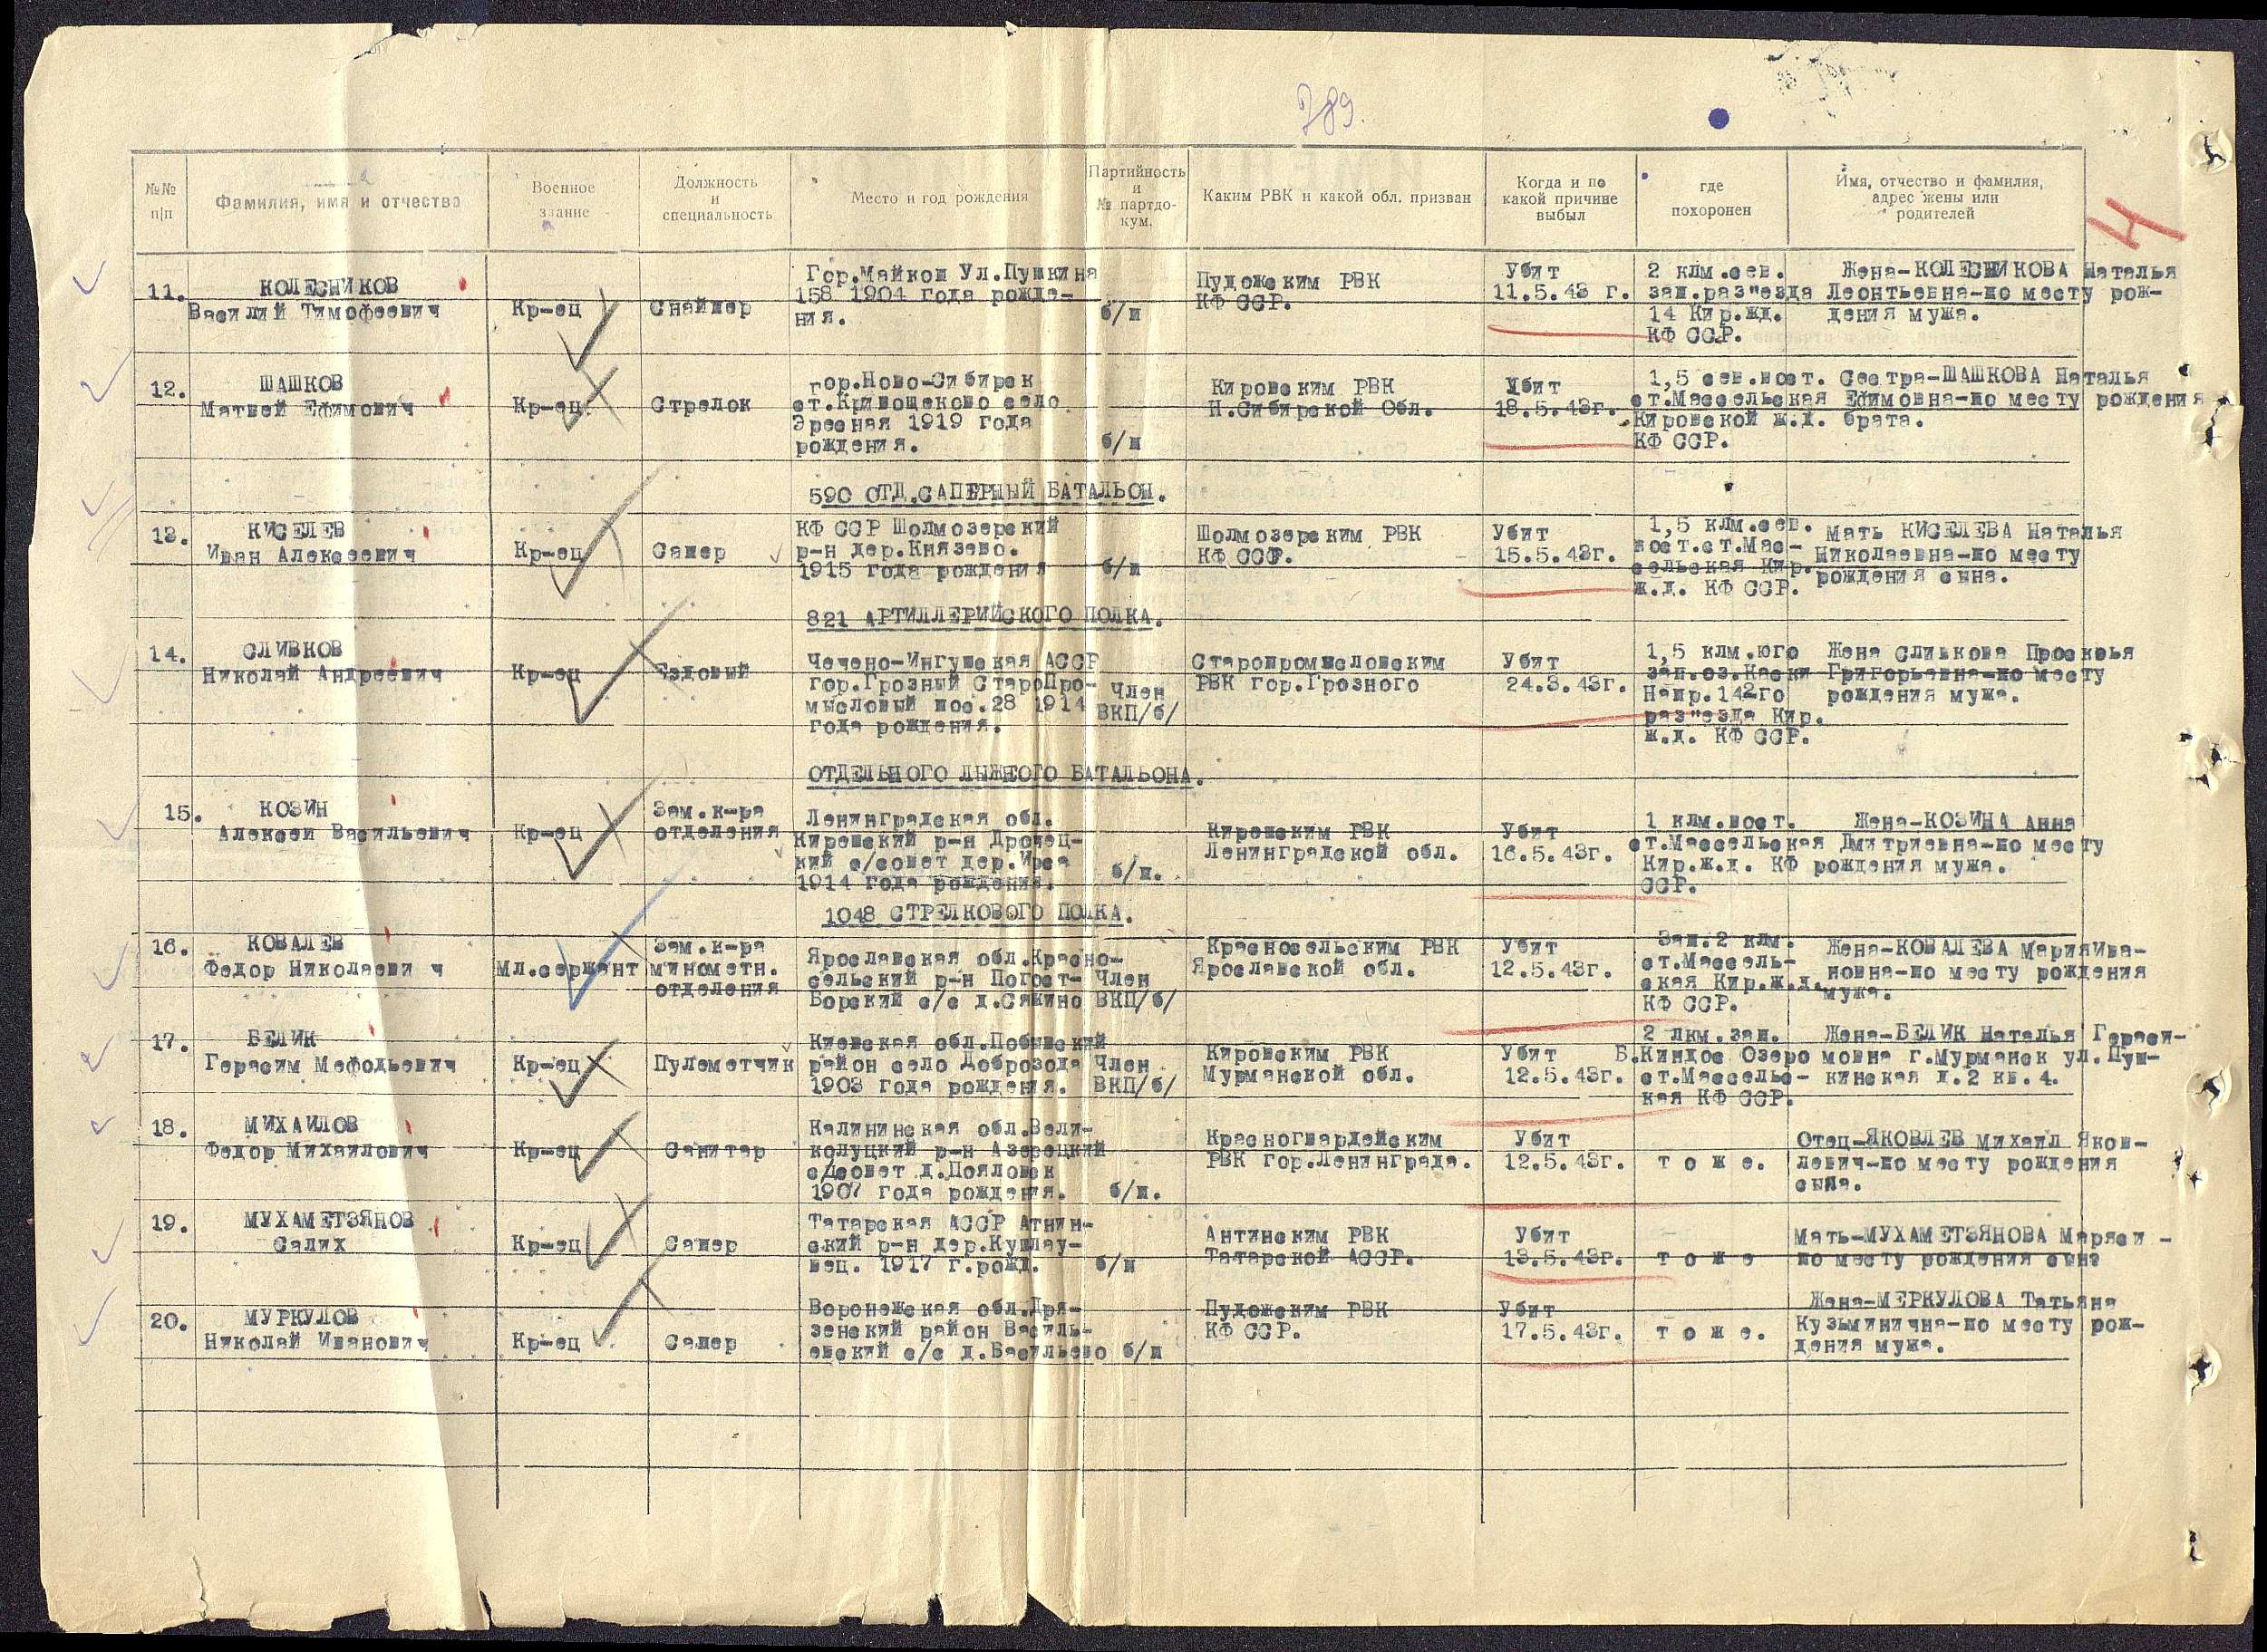 789.
№№ п/п
Фамилия, имя и отчество
Военное звание
Должность и специальность
Место и год рождения
Партийность и № партдокум.
Каким РВК и какой обл. призван
Когда и по какой причине выбыл
где похоронен
Имя, отчество и фамилия, адрес жены или родителей
11.
КОЛЕСНИКОВ
Василий Тимофеевич
Кр-ец
Снайпер
Гор.Майкоп Ул.Пушкина
158 1904 года рожде-
ния.
б/п
Пудожским РВК
КФ ССР.
Убит
11.5.43 г.
2 клм.сев.
зап.раз"езда
14 Кир.жд.
КФ ССР.
Жена-КОЛЕСНИКОВА Наталья
Леонтьевна-по месту рож-
дения мужа.
12.
ШАШКОВ
Матвей Ефимович
Кр-ец
Стрелок
гор.Ново-Сибирск
ст.Кривощеково село
Эресная 1919 года
рождения.
б/п
Кировским РВК
Н.Сибирской Обл.
Убит
18.5.43г.
1,5 сев.вост.
ст.Массельская
Кировской ж.д.
КФ ССР.
Сестра-ШАШКОВА Наталья
Ефимовна-по месту рождения
брата.
590 ОТД.САПЕРНЫЙ БАТАЛЬОН.
13.
КИСЕЛЕВ
Иван Алексеевич
Кр-ец
Сапер
КФ ССР Шолмозерский
р-н дер.Князево.
1915 года рождения
б/п
Шолмозерским РВК
КФ ССР.
Убит
15.5.43г.
1,5 клм.сев.
вост.ст.Мас-
сельская Кир.
ж.д. КФ ССР.
Мать КИСЕЛЕВА Наталья
Николаевна-по месту
рождения сына.
821 АРТИЛЛЕРИЙСКОГО ПОЛКА.
14.
СЛИВКОВ
Николай Андреевич
Кр-ец
Ездовый
Чечено-Ингушская АССР
гор.Грозный СтароПро-
мысловый пос.28 1914
года рождения.
Член
ВКП/б/
Старопромысловским
РВК гор.Грозного
Убит
24.3.43г.
1,5 клм.юго
зап.оз.Каски
Напр.14го
раз"езда Кир.
ж.д. КФ ССР.
Жена Сливкова Просковья
Григорьевна-по месту
рождения мужа.
ОТДЕЛЬНОГО ЛЫЖНОГО БАТАЛЬОНА.
15.
КОЗИН
Алексей Васильевич
Кр-ец
Зам.к-ра
отделения
Ленинградская обл.
Киришский р-н Дрочец-
кий с/совет дер.Ирса
1914 года рождения.
б/п.
Киришским РВК
Ленинградской обл.
Убит
16.5.43г.
1 клм.вост.
ст.Массельская
Кир.ж.д. КФ
ССР.
Жена-КОЗИНА Анна
Дмитриевна-по месту
рождения мужа.
1048 СТРЕЛКОВОГО ПОЛКА.
16.
КОВАЛЕВ
Федор Николаевич
Мл.сержант
Зам.к-ра
минометн.
отделения
Ярославская обл.Красно-
сельский р-н Погост-
Борский с/с д.Сякино
Член
ВКП/б/
Красносельским РВК
Ярославской обл.
Убит
12.5.43г.
Зап.2 клм.
ст.Массель-
ская Кир.ж.д.
КФ ССР.
Жена-КОВАЛЕВА МарияИва-
новна-по месту рождения
мужа.
17.
БЕЛИК
Герасим Мефодьевич
Кр-ец
Пулеметчик
Киевская обл.Побынский
район село Доброзода
1903 года рождения.
Член
ВКП/б/
Кировским РВК
Мурманской обл.
Убит
12.5.43г.
2 лкм.зап.
Б.Киндос Озеро
ст.Массельс-
кая КФ ССР.
Жена-БЕЛИК Наталья Гераси-
мовна г.Мурманск ул.Пуш-
кинская д.2 кв.4.
18.
МИХАЙЛОВ
Федор Михайлович
Кр-ец
Санитар
Калининская обл.Вели-
колуцкий р-н Азерецкий
с/совет д.Пояловск
1907 года рождения.
б/п.
Красногвардейским
РВК гор.Ленинграда.
Убит
12.5.43г.
т о ж е.
Отец-ЯКОВЛЕВ Михаил Яков-
левич-по месту рождения
сына.
19.
МУХАМЕТЗЯНОВ
Салих
Кр-ец
Сапер
Татарская АССР Атнин-
ский р-н дер.Кушлау-
вец. 1917 г.рожд.
б/п
Антинским РВК
Татарской АССР.
Убит
13.5.43г.
т о ж е
Мать-МУХАМЕТЗЯНОВА Маряси -
по месту рождения сына
20.
МУРКУЛОВ
Николай Иванович
Кр-ец
Сапер
Воронежская обл.Дря-
зенский район Василь-
евский с/с д.Васильево
б/п
Пудожским РВК
КФ ССР.
Убит
17.5.43г.
т о ж е.
Жена-МЕРКУЛОВА Татьяна
Кузьминична-по месту рож-
дения мужа.